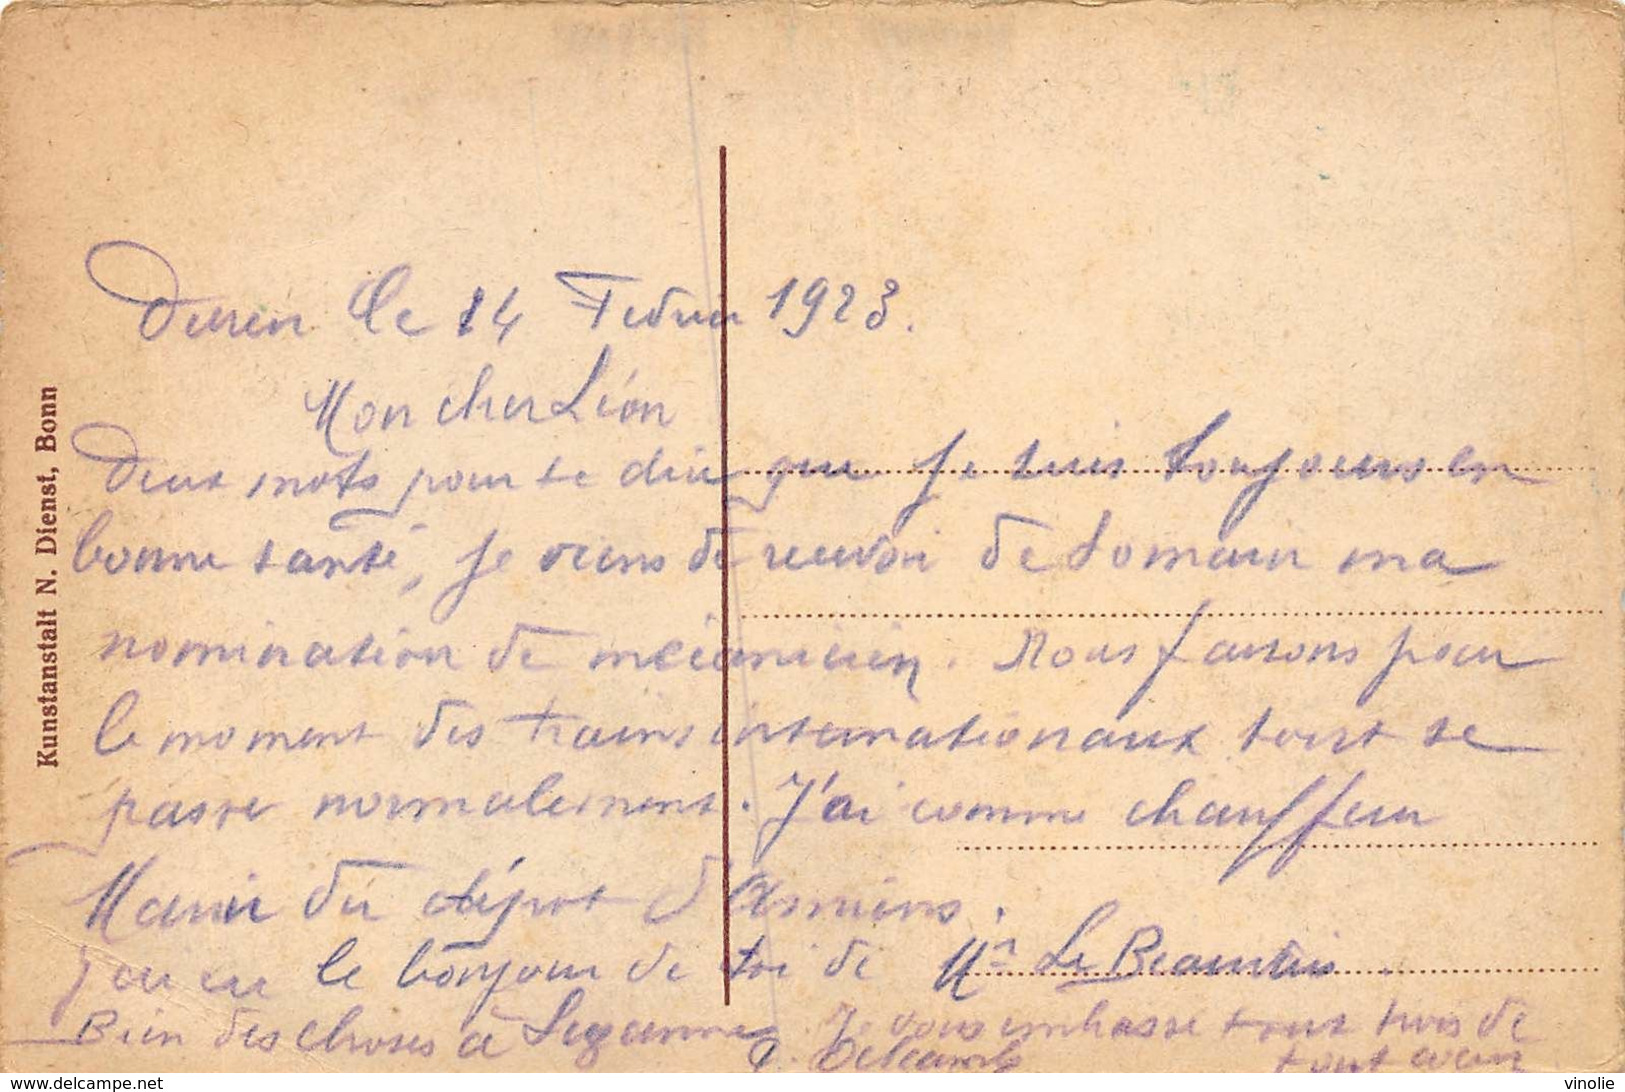 Kunstanstalt N. Dienst, Bonn
Duren le 14 Fevrier 1923.
Mon cher Léon
Deux mots pour te dire que je suis toujours en
bonne santé, je viens de recevoir de ma
nomination de mécanicien. Nous faisons pour
le moment des trains internationaux tout se
passe normalement. J'ai comme chauffeur
du dépot d'Amiens.
J'ai eu le bonjour de toi de Mr Le
Bien des choses à Suzanne, Je vous embrasse tous trois de
tout cœur
vinolie
www.delcampe.net